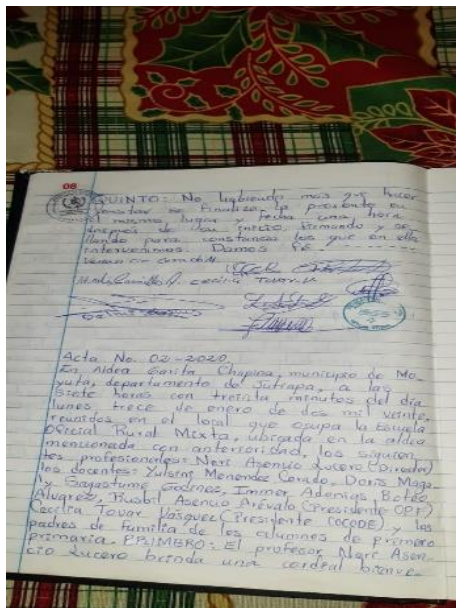 08
QUINTO: No habiendo mas que hacer
constar se finaliza la presente en
el mismo lugar y fecha una hora
después de su inicio firmando y se-
llando para constancia los que en ella
intervenimos. Damos Fé
Acta No. 02-2020.
En Aldea Garita Chapina, municipio de Mo-
yuta, departamento de Jutiapa, a las
siete horas con treinta minutos del dia
lunes trece de enero de dos mil veinte,
reunidos en el local que ocupa la Escuela
Oficial Rural Mixta, ubicada en la aldea
mencionada con anterioridad, los siguien-
tes profesionales: Neri Asencio Lucero (Director)
los docentes: Yulsini Menendez Cerado, Doris Maga-
ly Sagastume Godinez, Immer Adonias Botéo
Alvarez, Rusbil Asencio Arévalo (Presidente OPF)
Cecilia Tovar Vasquez (Presidente COCODE) y los
padres de familia de los alumnos de primero
primaria. PRIMERO: El profesor Neri Asen-
cio Lucero brinda una cordial bienve-